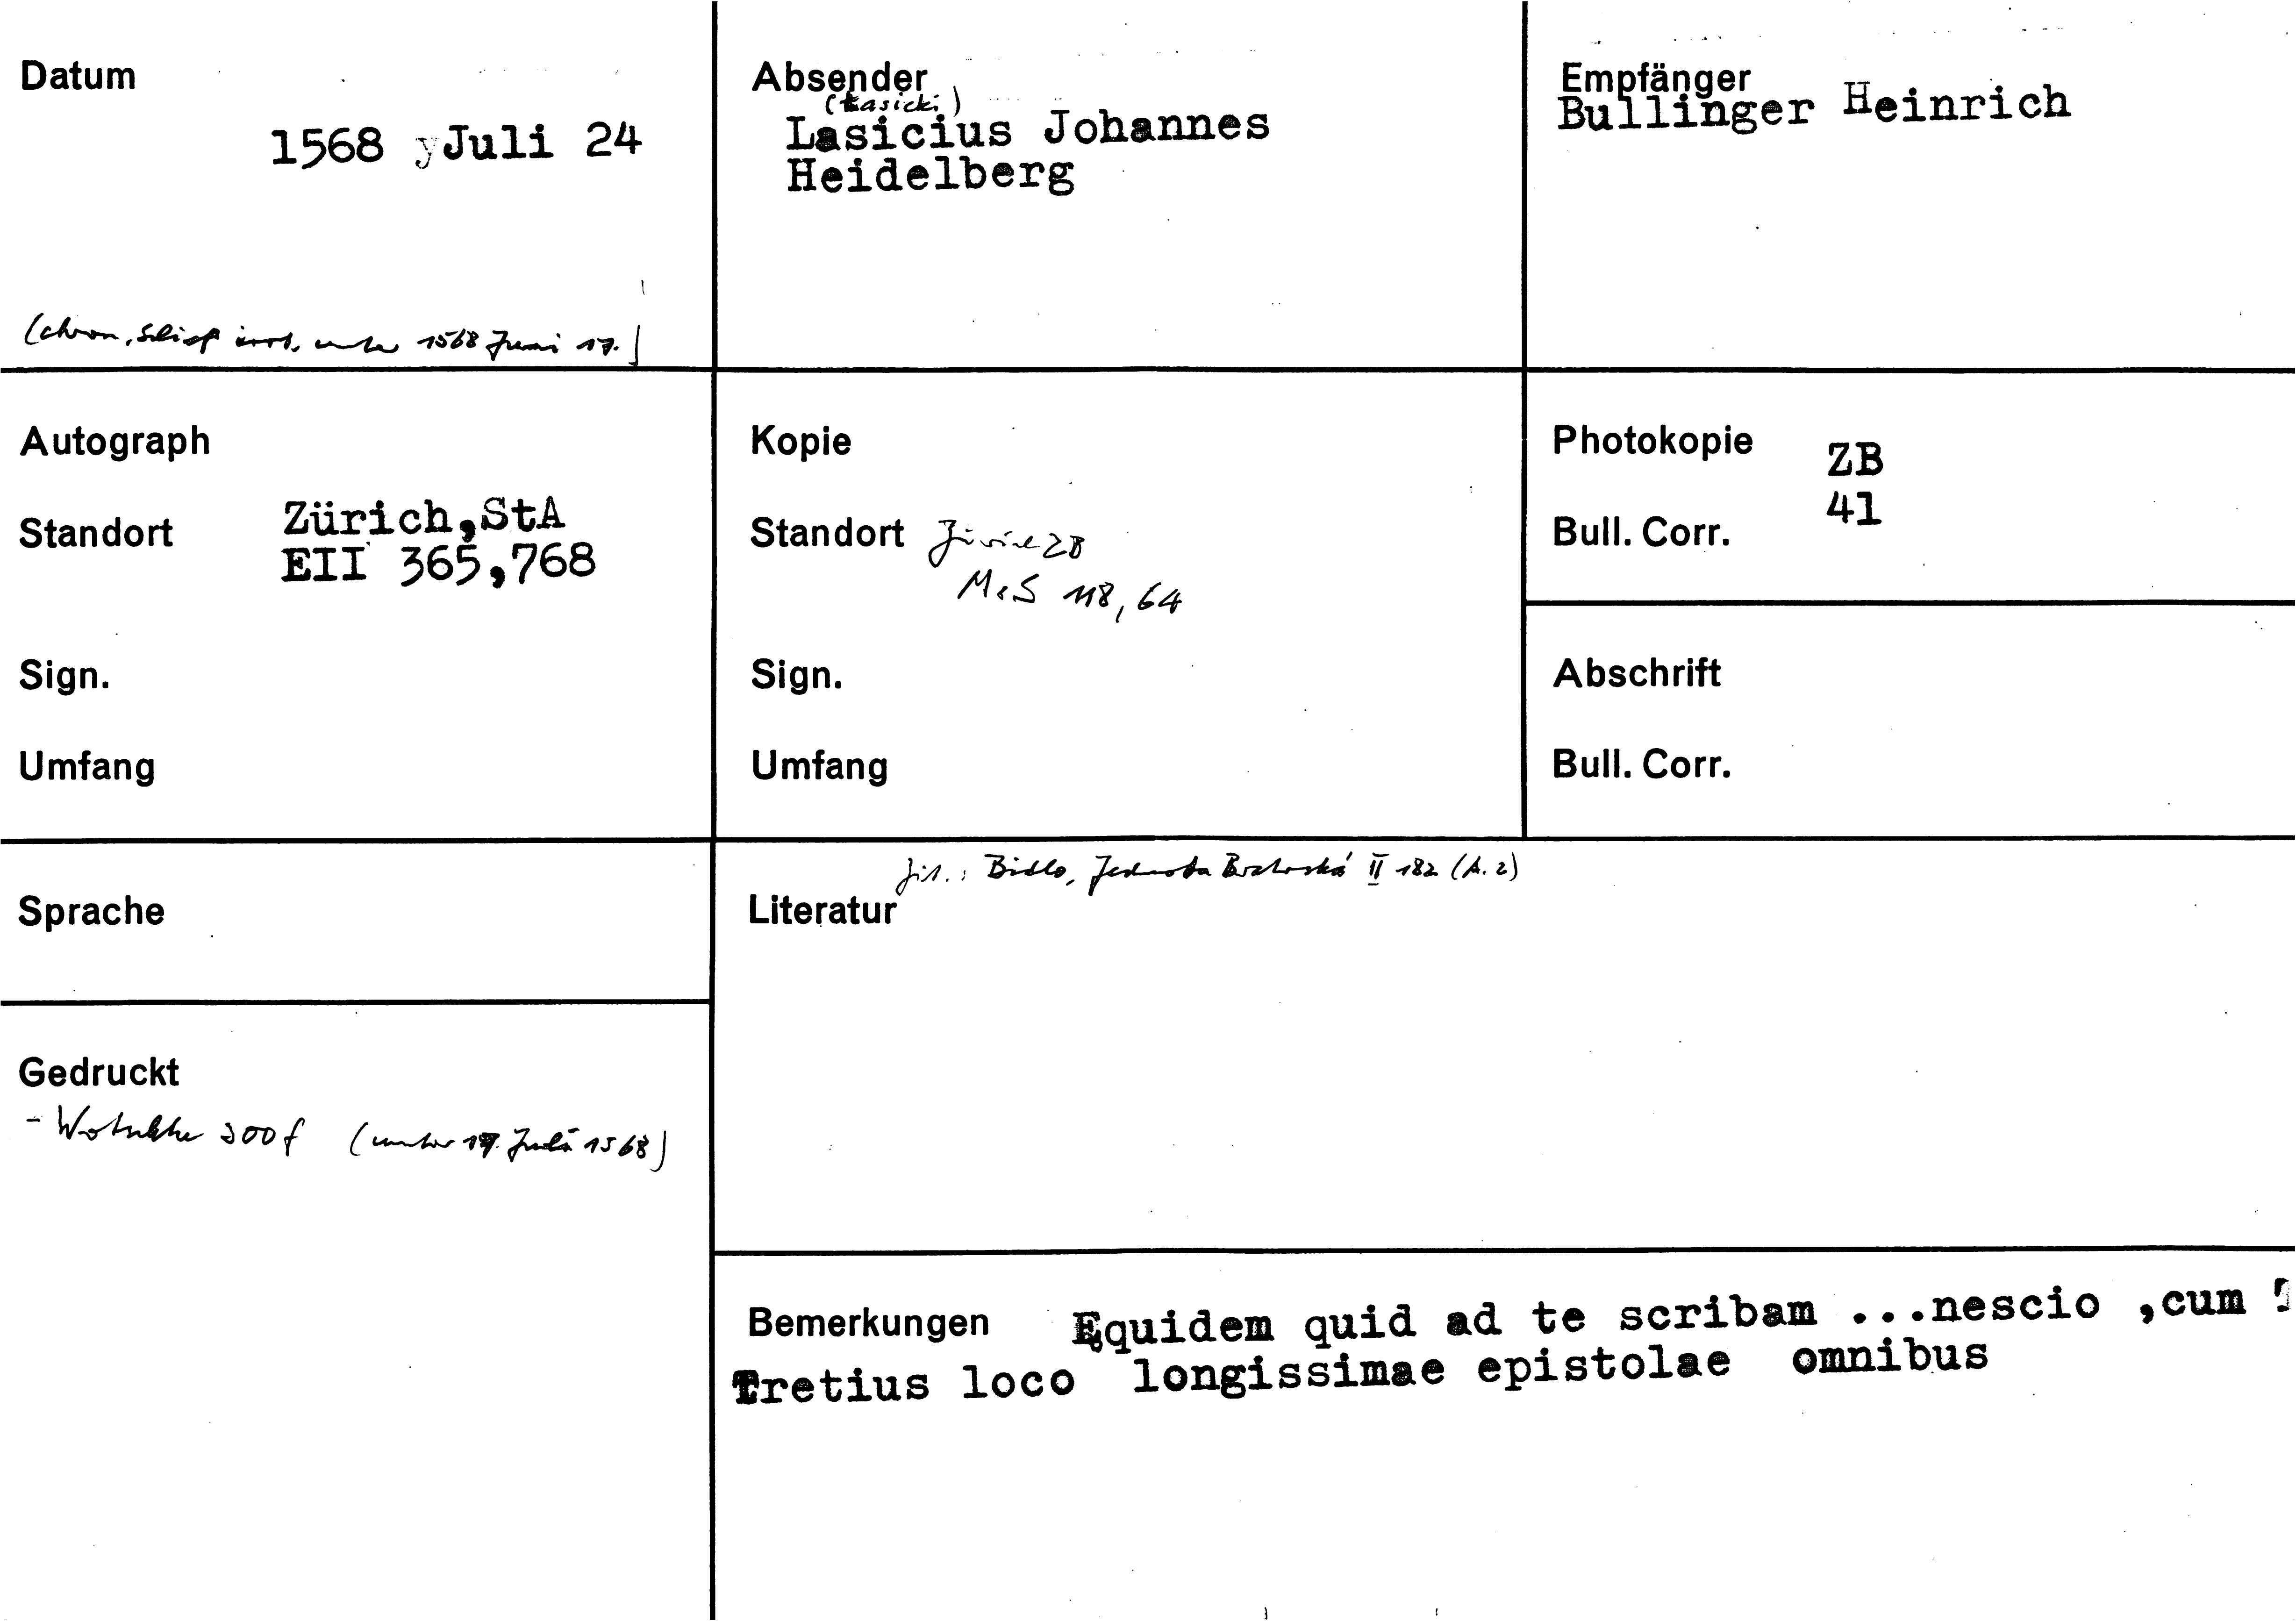 Datum
1568 Juli 24
(chron. abschr. irrt. unter 1568 Juni 17.)
Absender
(Łasicki)
Lasicius Johannes
Heidelberg
Empfänger
Bullinger Heinrich
Autograph
Standort Zürich,StA
EII 365,768
Sign.
Umfang
Kopie
Standort Zürich ZB
Ms S 118, 64
Sign.
Umfang
Photokopie ZB
Bull. Corr. 41
Abschrift
Bull. Corr.
Sprache
Zit.: Bidlo, Jednota Bratrská II 182 (A. 2)
Literatur
Gedruckt
- Wotschke 300f (unter 17. Juli 1568)
Bemerkungen Equidem quid ad te scribam ...nescio ,cum
Tretius loco longissimae epistolae omnibus